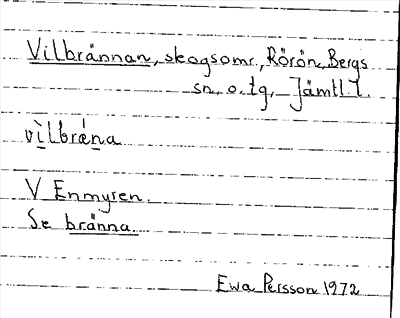 Vilbrännan, skogsomr., Rörön, Bergs
sn. o. tg, Jämtl. l.
vìlbrɛ́na
V Enmyren.
Se bränna.
Ewa Persson 1972